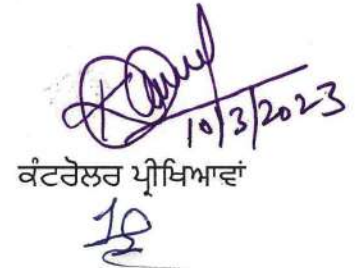 10/3/2023
ਕੰਟਰੋਲਰ ਪ੍ਰੀਖਿਆਵਾਂ